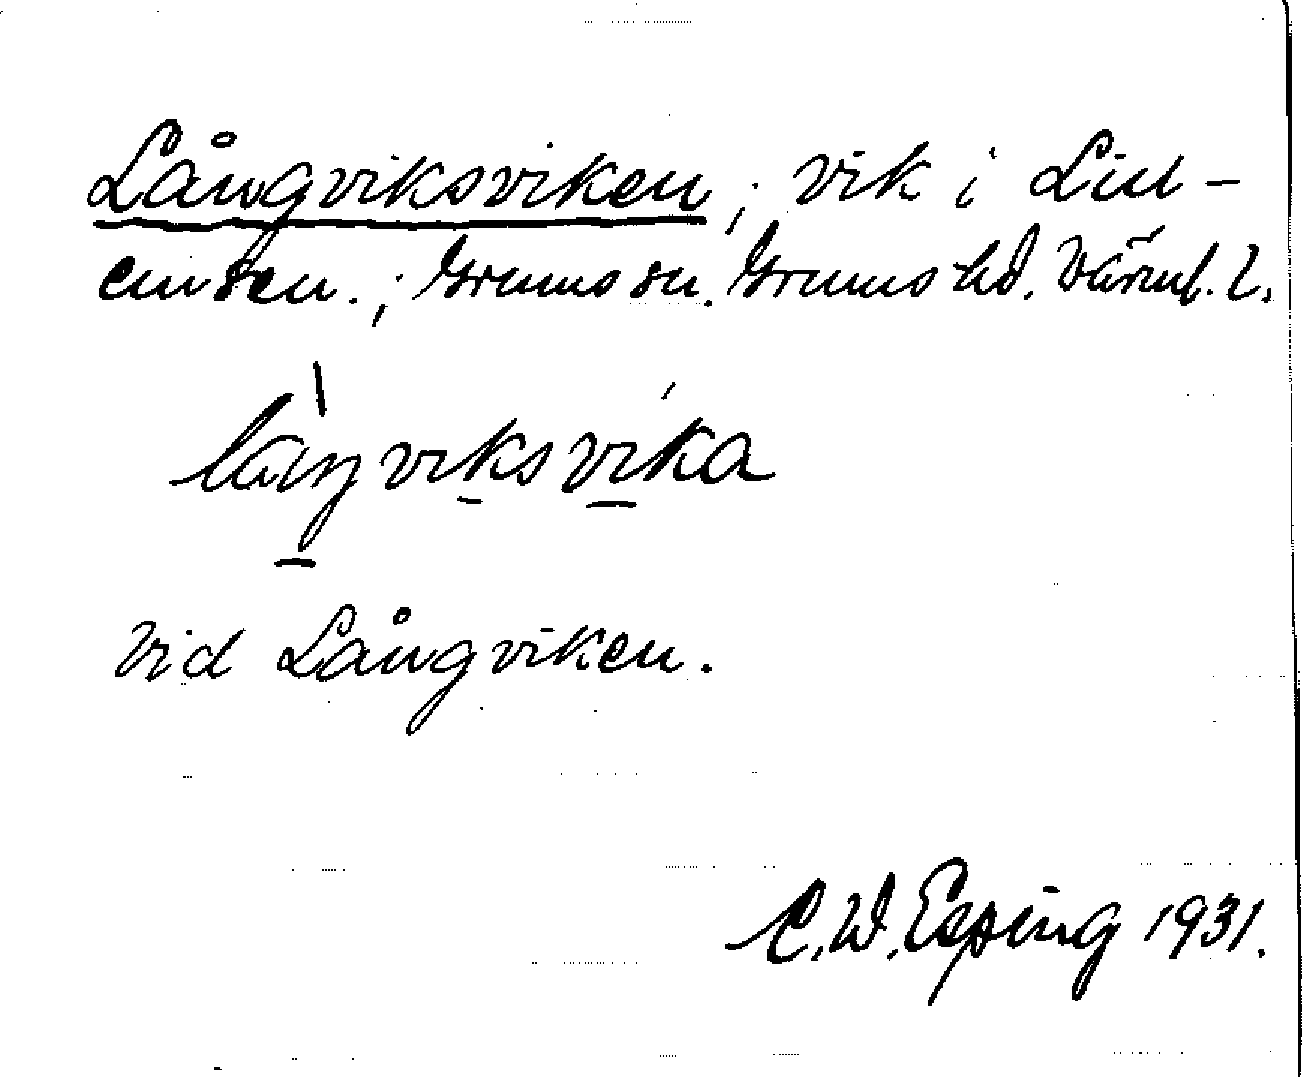 Långviksviken; vik i Lill-
emsen.; Grums sn. Grums hd. Värml. l.
làŋviksvíka
Vid Långviken.
C. W. Esping 1931.